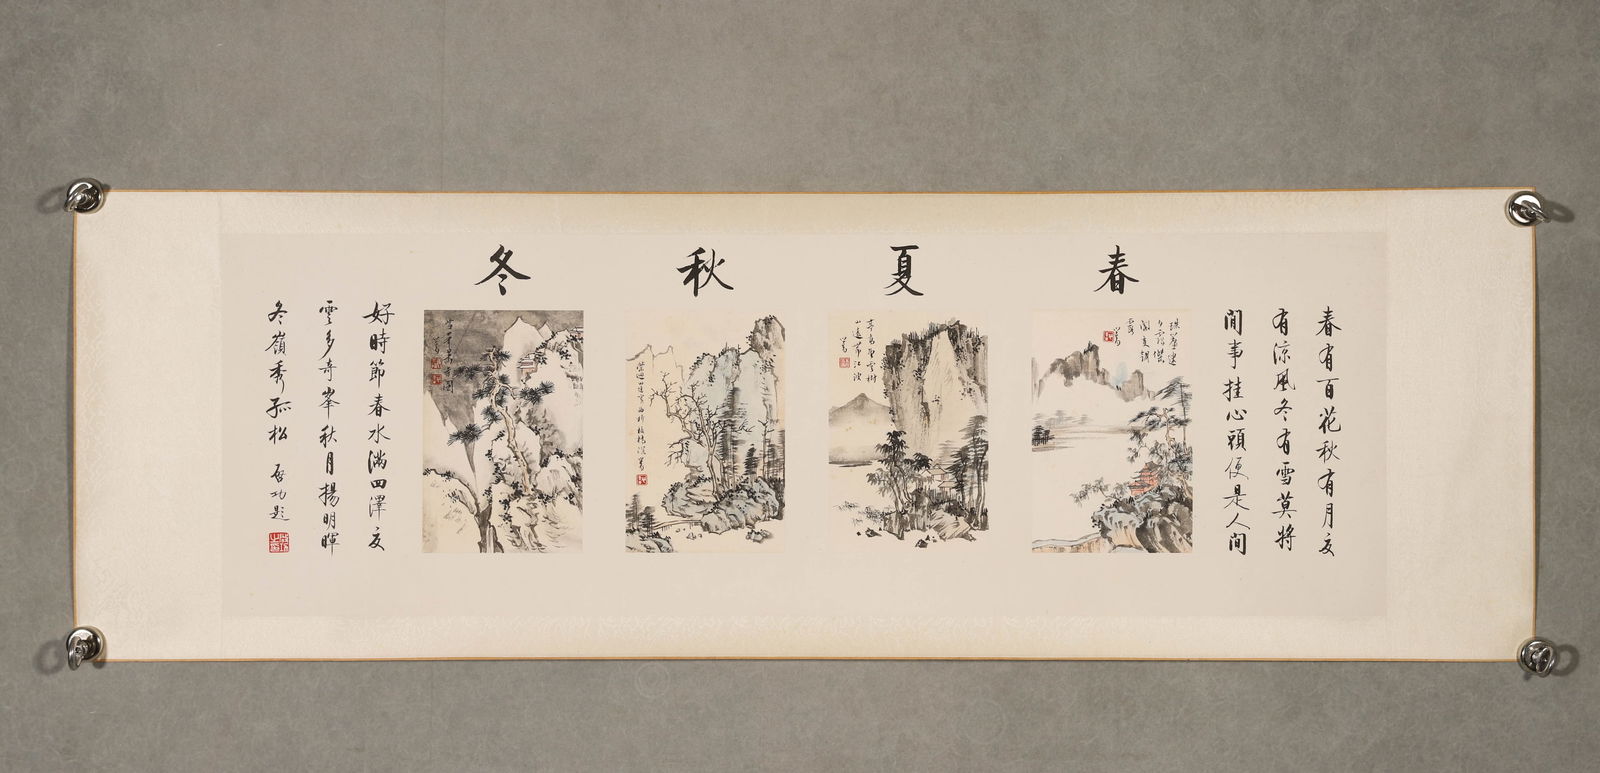 春有百花秋有月夏
有涼風冬有雪莫將
閒事挂心頭便是人間
春
夏
山遠帶江波
秋
冬
好時節春水滿四澤夏
雲多奇峯秋月揚明暉
冬嶺秀孤松 啓功題